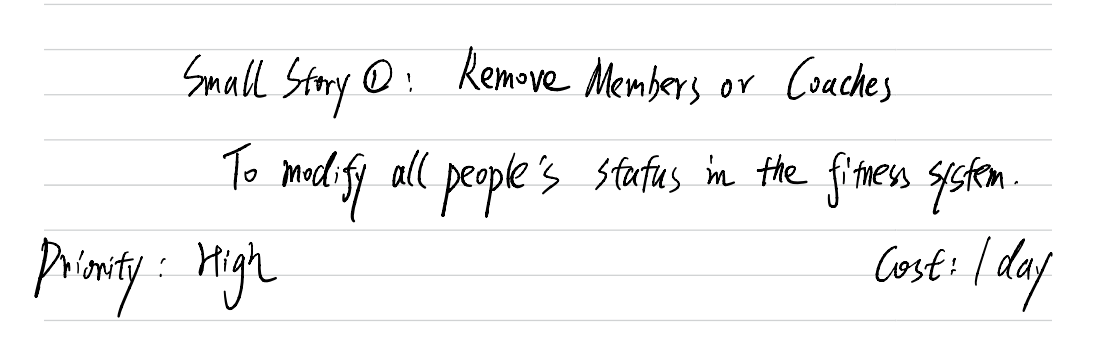 Small Story ①: Remove Members or Coaches
To modify all people's status in the fitness system.
Priority: High Cost: 1 day